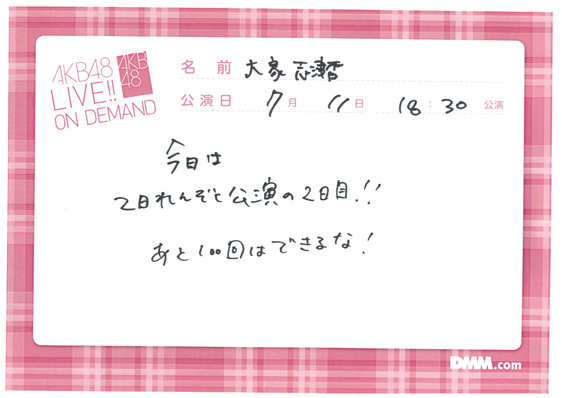 AKB48
LIVE!!
ON DEMAND
AKB
48
名前 大家志津香
公演日 7月 11日 18:30 公演
今日は
2日れんぞく公演の2日目!!
あと100回はできるな!
DMM.com